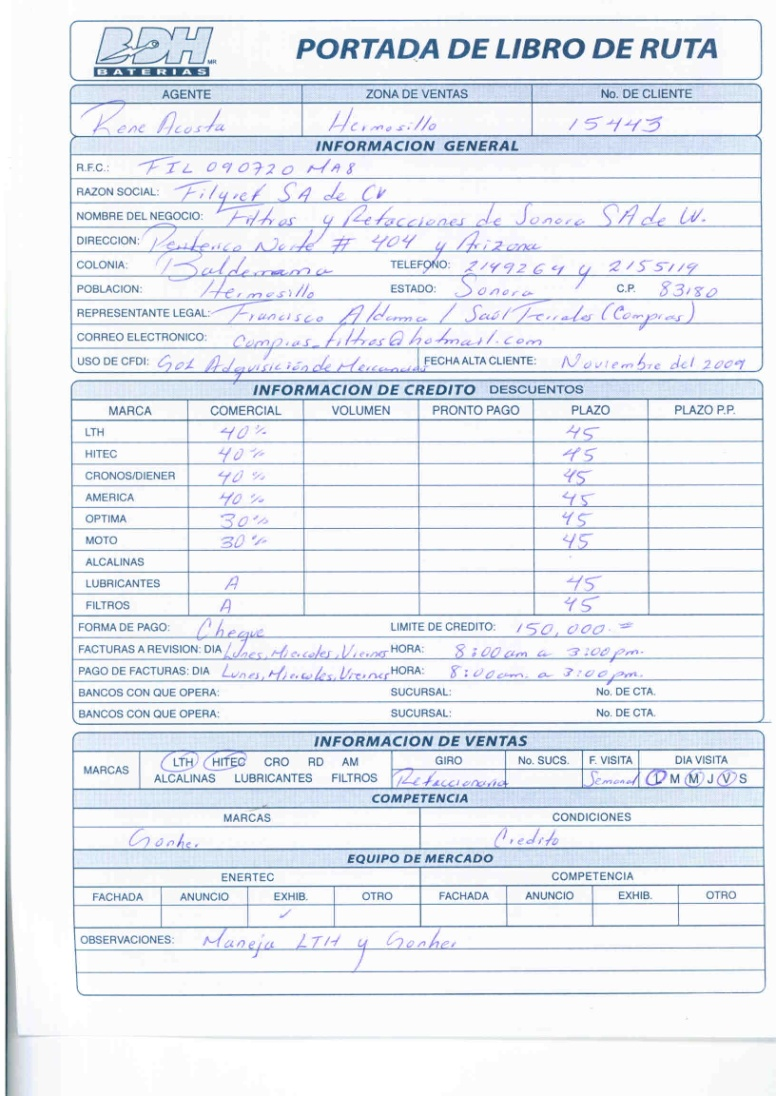 BDH MR
BATERIAS
PORTADA DE LIBRO DE RUTA
AGENTE ZONA DE VENTAS No. DE CLIENTE
Rene Acosta Hermosillo 15443
INFORMACION GENERAL
R.F.C.: FIL 090720 MA8
RAZON SOCIAL: Filyref SA de CV
NOMBRE DEL NEGOCIO: Filtros y Refacciones de Sonora SA de CV.
DIRECCION: Periferico Norte # 404 y Arizona
COLONIA: Balderrama TELEFONO: 2149264 y 2155119
POBLACION: Hermosillo ESTADO: Sonora C.P. 83180
REPRESENTANTE LEGAL: Francisco Aldama / Saúl Terrales (Compras)
CORREO ELECTRONICO: Compras_filtros@hotmail.com
USO DE CFDI: G01 Adquisición de Mercancias FECHA ALTA CLIENTE: Noviembre del 2009
INFORMACION DE CREDITO DESCUENTOS
MARCA COMERCIAL VOLUMEN PRONTO PAGO PLAZO PLAZO P.P.
LTH 40% 45
HITEC 40% 45
CRONOS/DIENER 40% 45
AMERICA 40% 45
OPTIMA 30% 45
MOTO 30% 45
ALCALINAS
LUBRICANTES A 45
FILTROS A 45
FORMA DE PAGO: Cheque LIMITE DE CREDITO: 150,000.=
FACTURAS A REVISION: DIA Lunes, Miercoles, Viernes HORA: 8:00am a 3:00pm.
PAGO DE FACTURAS: DIA Lunes, Miercoles, Viernes HORA: 8:00am. a 3:00pm.
BANCOS CON QUE OPERA: SUCURSAL: No. DE CTA.
BANCOS CON QUE OPERA: SUCURSAL: No. DE CTA.
INFORMACION DE VENTAS
MARCAS LTH HITEC CRO RD AM GIRO No. SUCS. F. VISITA DIA VISITA
ALCALINAS LUBRICANTES FILTROS Refaccionaria Semanal L M M J V S
COMPETENCIA
MARCAS CONDICIONES
Gonher Credito
EQUIPO DE MERCADO
ENERTEC COMPETENCIA
FACHADA ANUNCIO EXHIB. OTRO FACHADA ANUNCIO EXHIB. OTRO
✓
OBSERVACIONES: Maneja LTH y Gonher